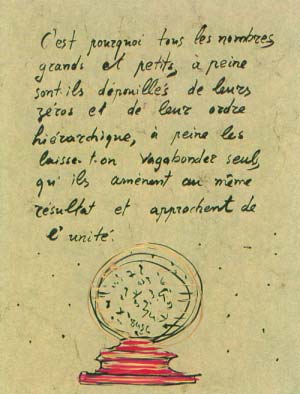 C'est pourquoi tous les nombres
grands et petits, à peine
sont-ils dépouillés de leurs
zéros et de leur ordre
hiérarchique, à peine les
laisse-t-on vagabonder seuls,
qu'ils amènent au même
résultat et approchent de
l'unité.